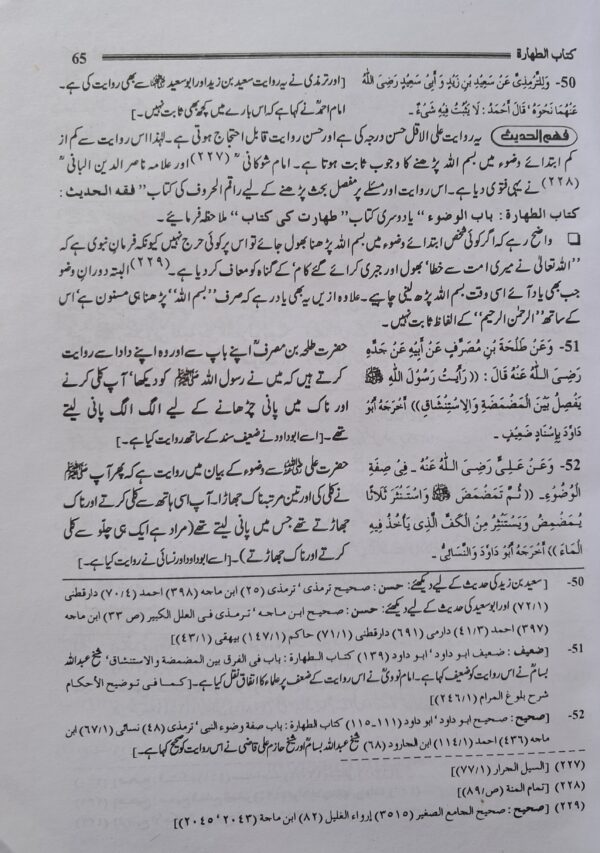 كتاب الطهارة 65
50- وَلِلتِّرْمِذِيِّ عَنْ سَعِيْدِ بْنِ زَيْدٍ وَ أَبِيْ سَعِيْدٍ رَضِيَ اللّٰهُ
عَنْهُمَا نَحْوَهُ ‘ قَالَ أَحْمَدُ : لَا يَثْبُتُ فِيْهِ شَيْءٌ ـ
[اور ترمذی نے یہ روایت سعید بن زید اور ابو سعید رضی اللہ عنہما سے بھی روایت کی ہے۔
امام احمدؒ نے کہا ہے کہ اس بارے میں کچھ بھی ثابت نہیں۔]
فهم الحديث یہ روایت علی الاقل حسن درجہ کی ہے اور حسن روایت قابل احتجاج ہوتی ہے۔ لہٰذا اس روایت سے کم از
کم ابتدائے وضوء میں بسم اللہ پڑھنے کا وجوب ثابت ہوتا ہے۔ امام شوکانیؒ (۲۲۷) اور علامہ ناصر الدین البانیؒ
(۲۲۸) نے یہی فتویٰ دیا ہے۔ اس روایت اور مسئلے پر مفصل بحث پڑھنے کے لیے راقم الحروف کی کتاب ”فقه الحديث :
كتاب الطهارة : باب الوضوء“ یا دوسری کتاب ”طهارت کی کتاب“ ملاحظہ فرمائیے۔
❑ واضح رہے کہ اگر کوئی شخص ابتدائے وضوء میں بسم اللہ پڑھنا بھول جائے تو اس پر کوئی حرج نہیں کیونکہ فرمان نبوی ہے کہ
”اللہ تعالیٰ نے میری امت سے خطا‘ بھول اور جبری کرائے گئے کام‘ کے گناہ کو معاف کر دیا ہے۔ (۲۲۹) البتہ دوران وضو
جب بھی یاد آئے اسی وقت بسم اللہ پڑھ لینی چاہیے۔ علاوہ ازیں یہ بھی یاد رہے کہ صرف ”بسم اللہ“ پڑھنا ہی مسنون ہے‘ اس
کے ساتھ ”الرحمٰن الرحیم“ کے الفاظ ثابت نہیں۔
51- وَعَنْ طَلْحَةَ بْنِ مُصَرِّفٍ عَنْ أَبِيْهِ عَنْ جَدِّهِ
رَضِيَ اللّٰهُ عَنْهُ قَالَ : (( رَأَيْتُ رَسُوْلَ اللّٰهِ ﷺ
يَفْصِلُ بَيْنَ الْمَضْمَضَةِ وَالْاِسْتِنْشَاقِ )) أَخْرَجَهُ أَبُوْ
دَاوُدَ بِإِسْنَادٍ ضَعِيْفٍ ـ
حضرت طلحہ بن مصرفؒ اپنے باپ سے اور وہ اپنے دادا سے روایت
کرتے ہیں کہ میں نے رسول اللہ ﷺ کو دیکھا‘ آپ کلی کرنے
اور ناک میں پانی چڑھانے کے لیے الگ الگ پانی لیتے
تھے۔ [اسے ابو داود نے ضعیف سند کے ساتھ روایت کیا ہے۔]
52- وَعَنْ عَلِيٍّ رَضِيَ اللّٰهُ عَنْهُ ـ فِيْ صِفَةِ
الْوُضُوْءِ ـ (( ثُمَّ تَمَضْمَضَ ﷺ وَاسْتَنْثَرَ ثَلَاثًا
يُمَضْمِضُ وَيَسْتَنْثِرُ مِنَ الْكَفِّ الَّذِيْ يَأْخُذُ فِيْهِ
الْمَاءَ )) أَخْرَجَهُ أَبُوْ دَاوُدَ وَالنَّسَائِيُّ ـ
حضرت علی رضی اللہ عنہ سے وضوء کے بیان میں روایت ہے کہ پھر آپ ﷺ
نے کلی کی اور تین مرتبہ ناک جھاڑا۔ آپ اسی ہاتھ سے کلی کرتے اور ناک
جھاڑتے تھے جس میں پانی لیتے تھے (مراد ہے ایک ہی چلو سے کلی
کرتے اور ناک جھاڑتے)۔ [اسے ابو داود اور نسائی نے روایت کیا ہے۔]
50- [سعید بن زید کی حدیث کے لیے دیکھئے : حسن : صحيح ترمذی ‘ ترمذی (۲۵) ابن ماجه (۳۹۸) احمد (۷۰/۴) دارقطنی
(۷۲/۱) اور ابو سعید کی حدیث کے لیے دیکھئے : حسن : صحيح ابن ماجه ‘ ترمذی فی العلل الكبير (ص ۳۳) ابن ماجه
(۳۹۷) احمد (۴۱/۳) دارمی (۶۹۱) دارقطنی (۷۱/۱) حاكم (۱۴۷/۱) بیهقی (۴۳/۱)]
51- [ضعيف : ضعيف ابو داود ‘ ابو داود (۱۳۹) كتاب الطهارة : باب فی الفرق بين المضمضة والاستنشاق ‘ شیخ عبداللہ
بسامؒ نے اس روایت کو ضعیف کہا ہے۔ امام نوویؒ نے اس روایت کے ضعف پر علماء کا اتفاق نقل کیا ہے۔[كما فی توضيح الأحكام
شرح بلوغ المرام (۲۴۶/۱)]
52- [صحيح : صحيح ابو داود ‘ ابو داود (۱۱۱-۱۱۵) كتاب الطهارة : باب صفة وضوء النبی ‘ ترمذی (۴۸) نسائی (۶۷/۱) ابن
ماجه (۴۳۶) احمد (۱۱۴/۱) ابن الجارود (۶۸) شیخ عبداللہ بسامؒ اور شیخ حازم علی قاضی نے اس روایت کو صحیح کہا ہے۔]
(۲۲۷) [السيل الجرار (۷۷/۱)]
(۲۲۸) [تمام المنة (ص/۸۹)]
(۲۲۹) [صحيح : صحيح الجامع الصغير (۳۵۱۵) إرواء الغليل (۸۲) ابن ماجة (۲۰۴۳ ‘ ۲۰۴۵)]